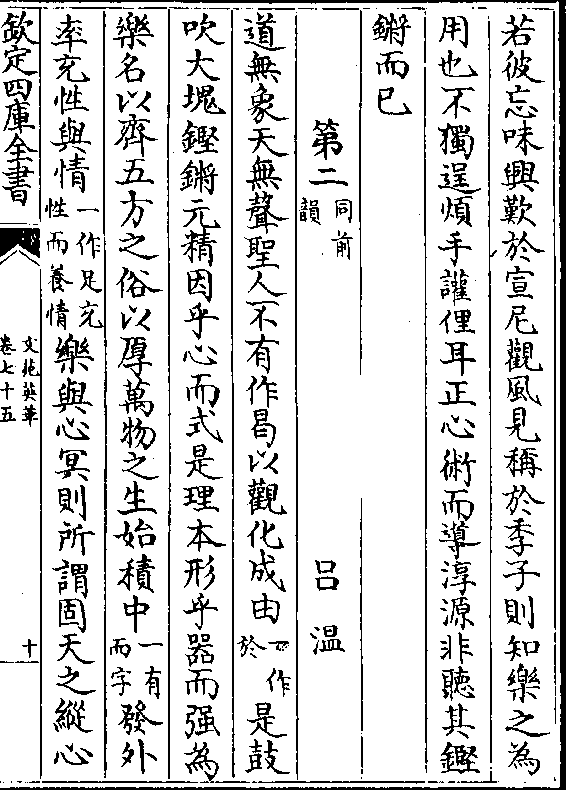 若彼忘味興歎於宣尼觀風見稱於季子則知樂之為
用也不獨逞煩手讙俚耳正心術而導淳源非聽其鏗
鏘而已
第二 同前韻 吕溫
道無象天無聲聖人不有作曷以觀化成由一作於是鼓
吹大塊鏗鏘元精因乎心而式是理本形乎器而强為
樂名以齊五方之俗以厚萬物之生始積中一有而字發外
率充性與情一作足充性而養情樂與心冥則所謂固天之縱心
欽定四庫全書
文苑英華
卷七十五
十